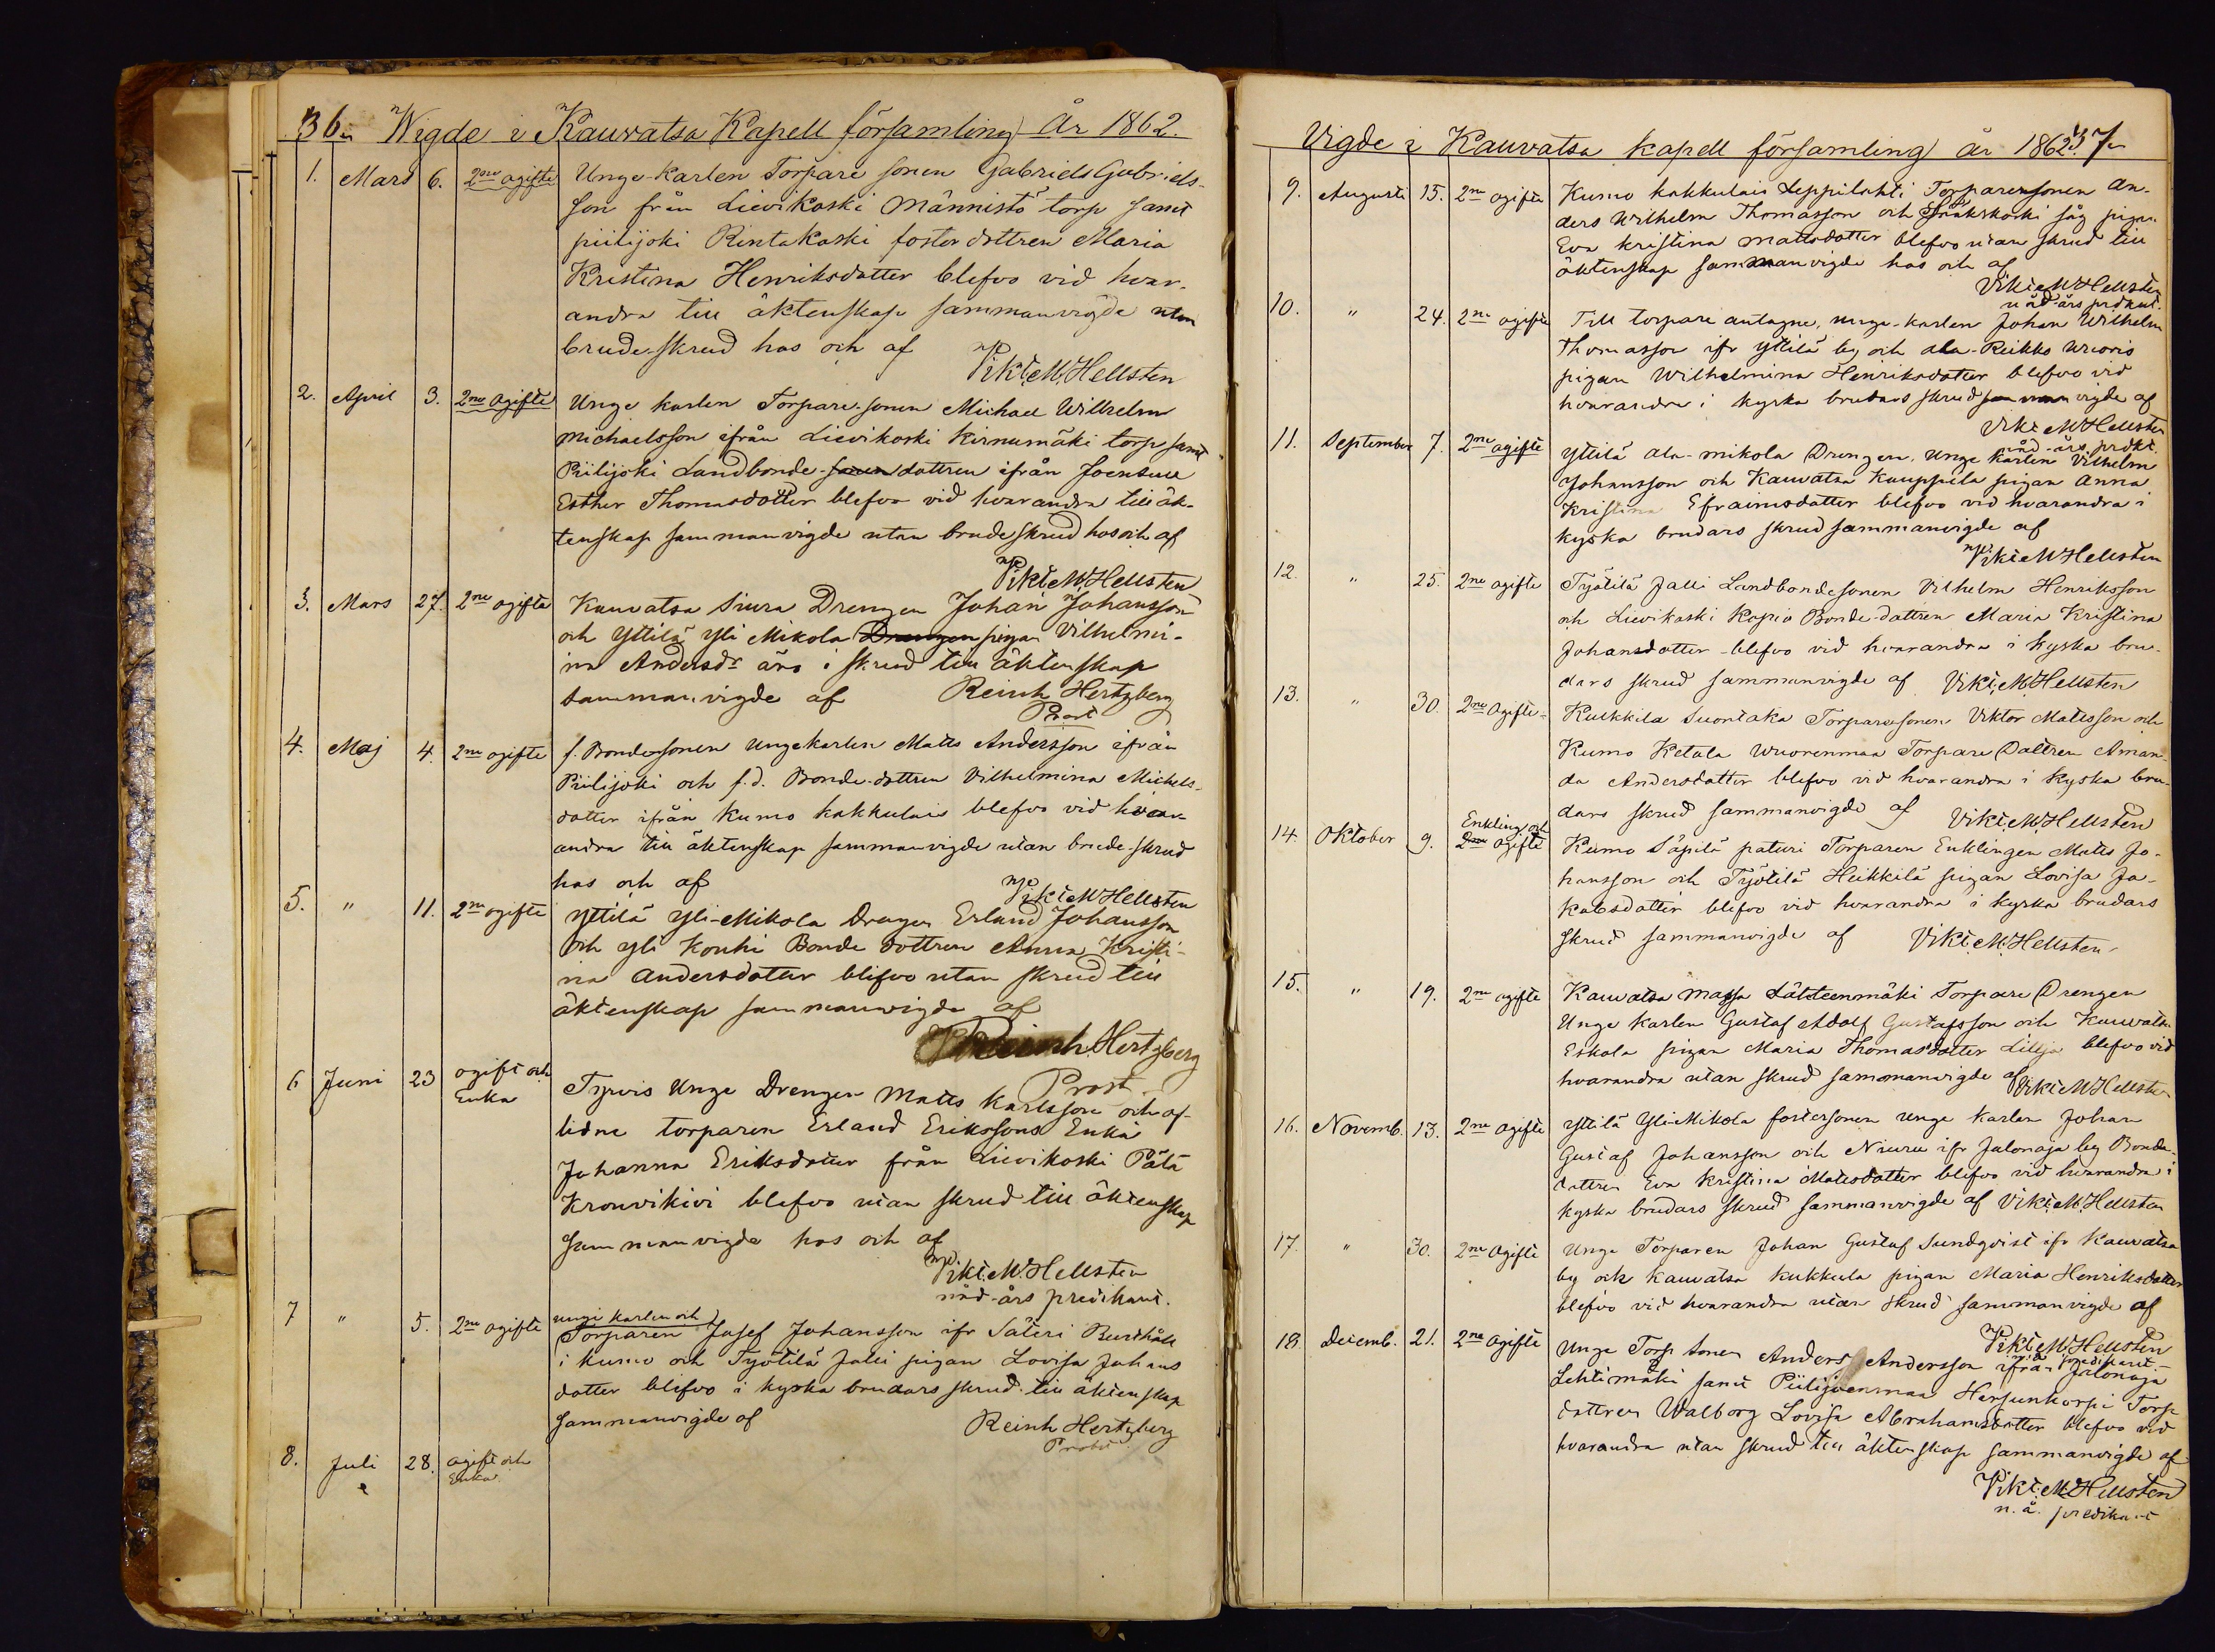 36. Wigde i Kauvatsa Kapell församling År 1862.
1. Mars 6. 2ne ogifte Unge-karlen Torpare sonen Gabriel Gabriels-
son från Lievikoski Männistö torp samt
piilijoki Rintakoski foster dottren Maria
Kristina Henriksdotter blefvo vid hvar-
andra till äktenskap sammanvigde utan
brude-skrud hos och af
Vikt. M. Hellsten
2. April 3. 2ne ogifte Unge karlen Torpare-sonen Michael Wilhelm
Michaelsson ifrån Lievikoski Kirnumäki torp samt
Piilijoki Landbonde-sonen dottren ifrån Joensuu
Esther Thomasdotter blefvo vid hvarandra till äk-
tenskap sammanvigde utan brudeskrud hos och af
Vikt M Hellsten
3. Mars 27. 2ne ogifta Kauvatsa Siura Drengen Johan Johansson
och Yttilä Yli Mikola Drengen pigan Vilhelmi-
na Andersdr äro i skrud till äktenskap
sammanvigde af Reinh Hertzberg
Prost
4. Maj 4. 2ne ogifte f. Bondesonen Ungekarlen Matts Andersson ifrån
Piilijoki och f.d. Bonde-dottren Vilhelmina Michels-
dotter ifrån Kumo kakkulais blefvo vid hvar-
andra till äktenskap sammanvigde utan brude-skrud
hos och af Vikt M Hellsten
5. " 11. 2ne ogifte Yttilä Yli-Mikola Drengen Erland Johansson
och Yli Kouhi Bonde dottren Anna Kristi-
na Andersdotter blifvo utan skrud till
äktenskap sammanvigde af
Reinh. Hertzberg
Prost
6 Juni 23 ogift och Enka Tyrvis Unge Drengen Matts Karlsson och af-
lidne torparen Erland Erikssons Enka
Johanna Eriksdotter från Lievikoski Pätä
Krouvikivi blefvo utan skrud till äktenskap
sammanvigde hos och af
Vikt. M. Hellsten
nåd-års predikant.
7 " 5. 2ne ogifte unge karlen och
Torparen Josef Johansson ifr Säteri
i kumo och Työtilä Jalli pigan Lovisa Johans
dotter blifvo i kyska brudars skrud till äktenskap
sammanvigde af Reinh Hertzberg
Prost
8. Juli 28. ogift och Enka
Vigde i Kauvatsa kapell församling år 1862. 37.
9. Augusti 15. 2ne ogifta Kumo kakkulais Leppilahti Torparensonen An-
ders Wilhelm Thomasson och såg pigan
Eva Kristina Mattsdotter blefvo utan skrud till
äktenskap sammanvigde hos och af
Vikt M Hellsten
nåd-års predikant.
10. " 24. 2ne ogifte Till torpare antagne, unge-karlen Johan Wilhelm
Thomasson ifr Yttilä by och ala-Reikko
pigan Wilhelmina Henriksdotter blefvo vid
hvarandra i kyska brudars skrud sammanvigde af
Vikt M Hellsten
nåd-års predkt.
11. September 7. 2ne ogifte Yttilä ala-mikola Drengen, Unge Karlen Vilhelm
Johansson och Kauvatsa Kauppila pigan Anna
Kristina Efraimsdotter blefvo vid hvarandra i
kyska brudars skrud sammanvigde af
Vikt M Hellsten
12. " 25. 2ne ogifte Työtilä Jalli Landbondesonen Vilhelm Henriksson
och Lievikoski Kopio Bonde-dottren Maria Kristina
Johansdotter blefvo vid hvarandra i kyska bru-
dars skrud sammanvigde af Vikt. M. Hellsten
13. " 30. 2ne ogifte Kulkkila Suontaka Torparesonen Viktor Matsson och
Kumo Ketola Wuorenmaa Torpare Dottren Aman-
da Andersdotter blefvo vid hvarandra i kyska bru-
dars skrud sammanvigde af Vikt. M. Hellsten
14. Oktober 9. Enkling och 2ne ogifte Kumo Säpilä paturi Torparen Enklingen Matts Jo-
hansson och Työtilä Heikkilä pigan Lovisa Ja-
kobsdotter blefvo vid hvarandra i kyska brudars
skrud sammanvigde af Vikt. M. Hellsten.
15. " 19. 2ne ogifte Kauvatsa Massa Lähteenmäki Torpare Drengen
Unge karlen Gustaf Adolf Gustafsson och Kauvatsa
Eskola pigan Maria Thomasdotter Lilja blefvo vid
hvarandra utan skrud sammanvigde af Vikt M Hellsten
16. Novemb. 13. 2ne ogifte Yttilä Yli-Mikola fostersonen unge karlen Johan
Gustaf Johansson och Niuru ifr Jalonoja by Bonde-
dottren Eva Kristina Matsdotter blefvo vid hvarandra i
kyska brudars skrud sammanvigde af Vikt. M. Hellsten
17. " 30. 2ne ogifte Unge Torparen Johan Gustaf Sundqvist ifr Kauvatsa
by och kauvatsa kukkula pigan Maria Henriksdotter
blefvo vid hvarandra utan skrud sammanvigde af
Vikt M Hellsten
nåd predikant.
18. Decemb. 21. 2ne ogifte Unge Torp sonen Anders Andersson ifrån Jalonoja
Lehtimäki samt Piilijoenmaa Herjunkorpi Torp
dottren Walborg Lovisa Abrahamsdotter blefvo vid
hvarandra utan skrud till äktenskap sammanvigde af
Vikt. M. Hellsten
n. å. predikant